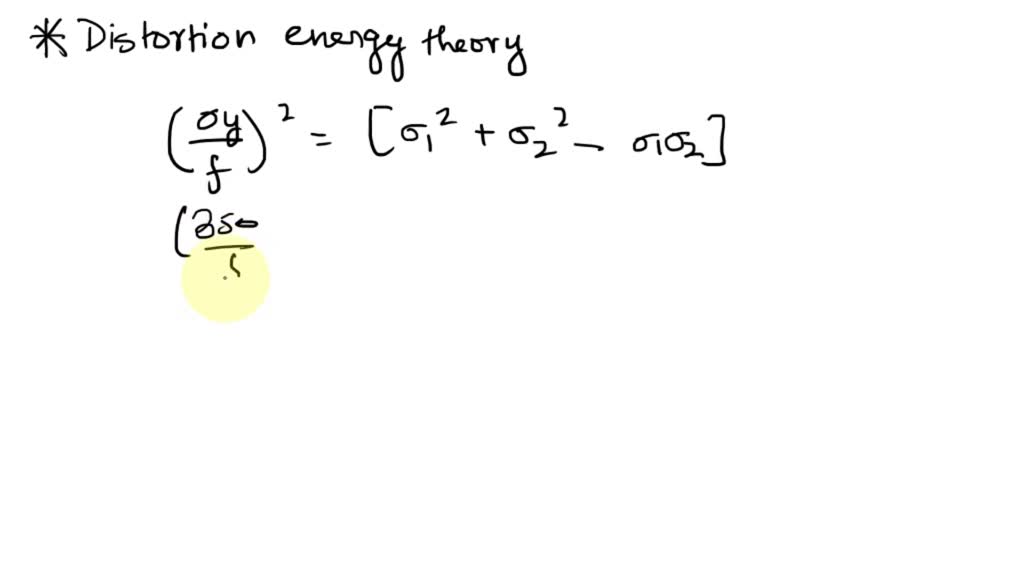 * Distortion energy theory
(σy/f)² = [σ₁² + σ₂² - σ₁σ₂]
(350/f